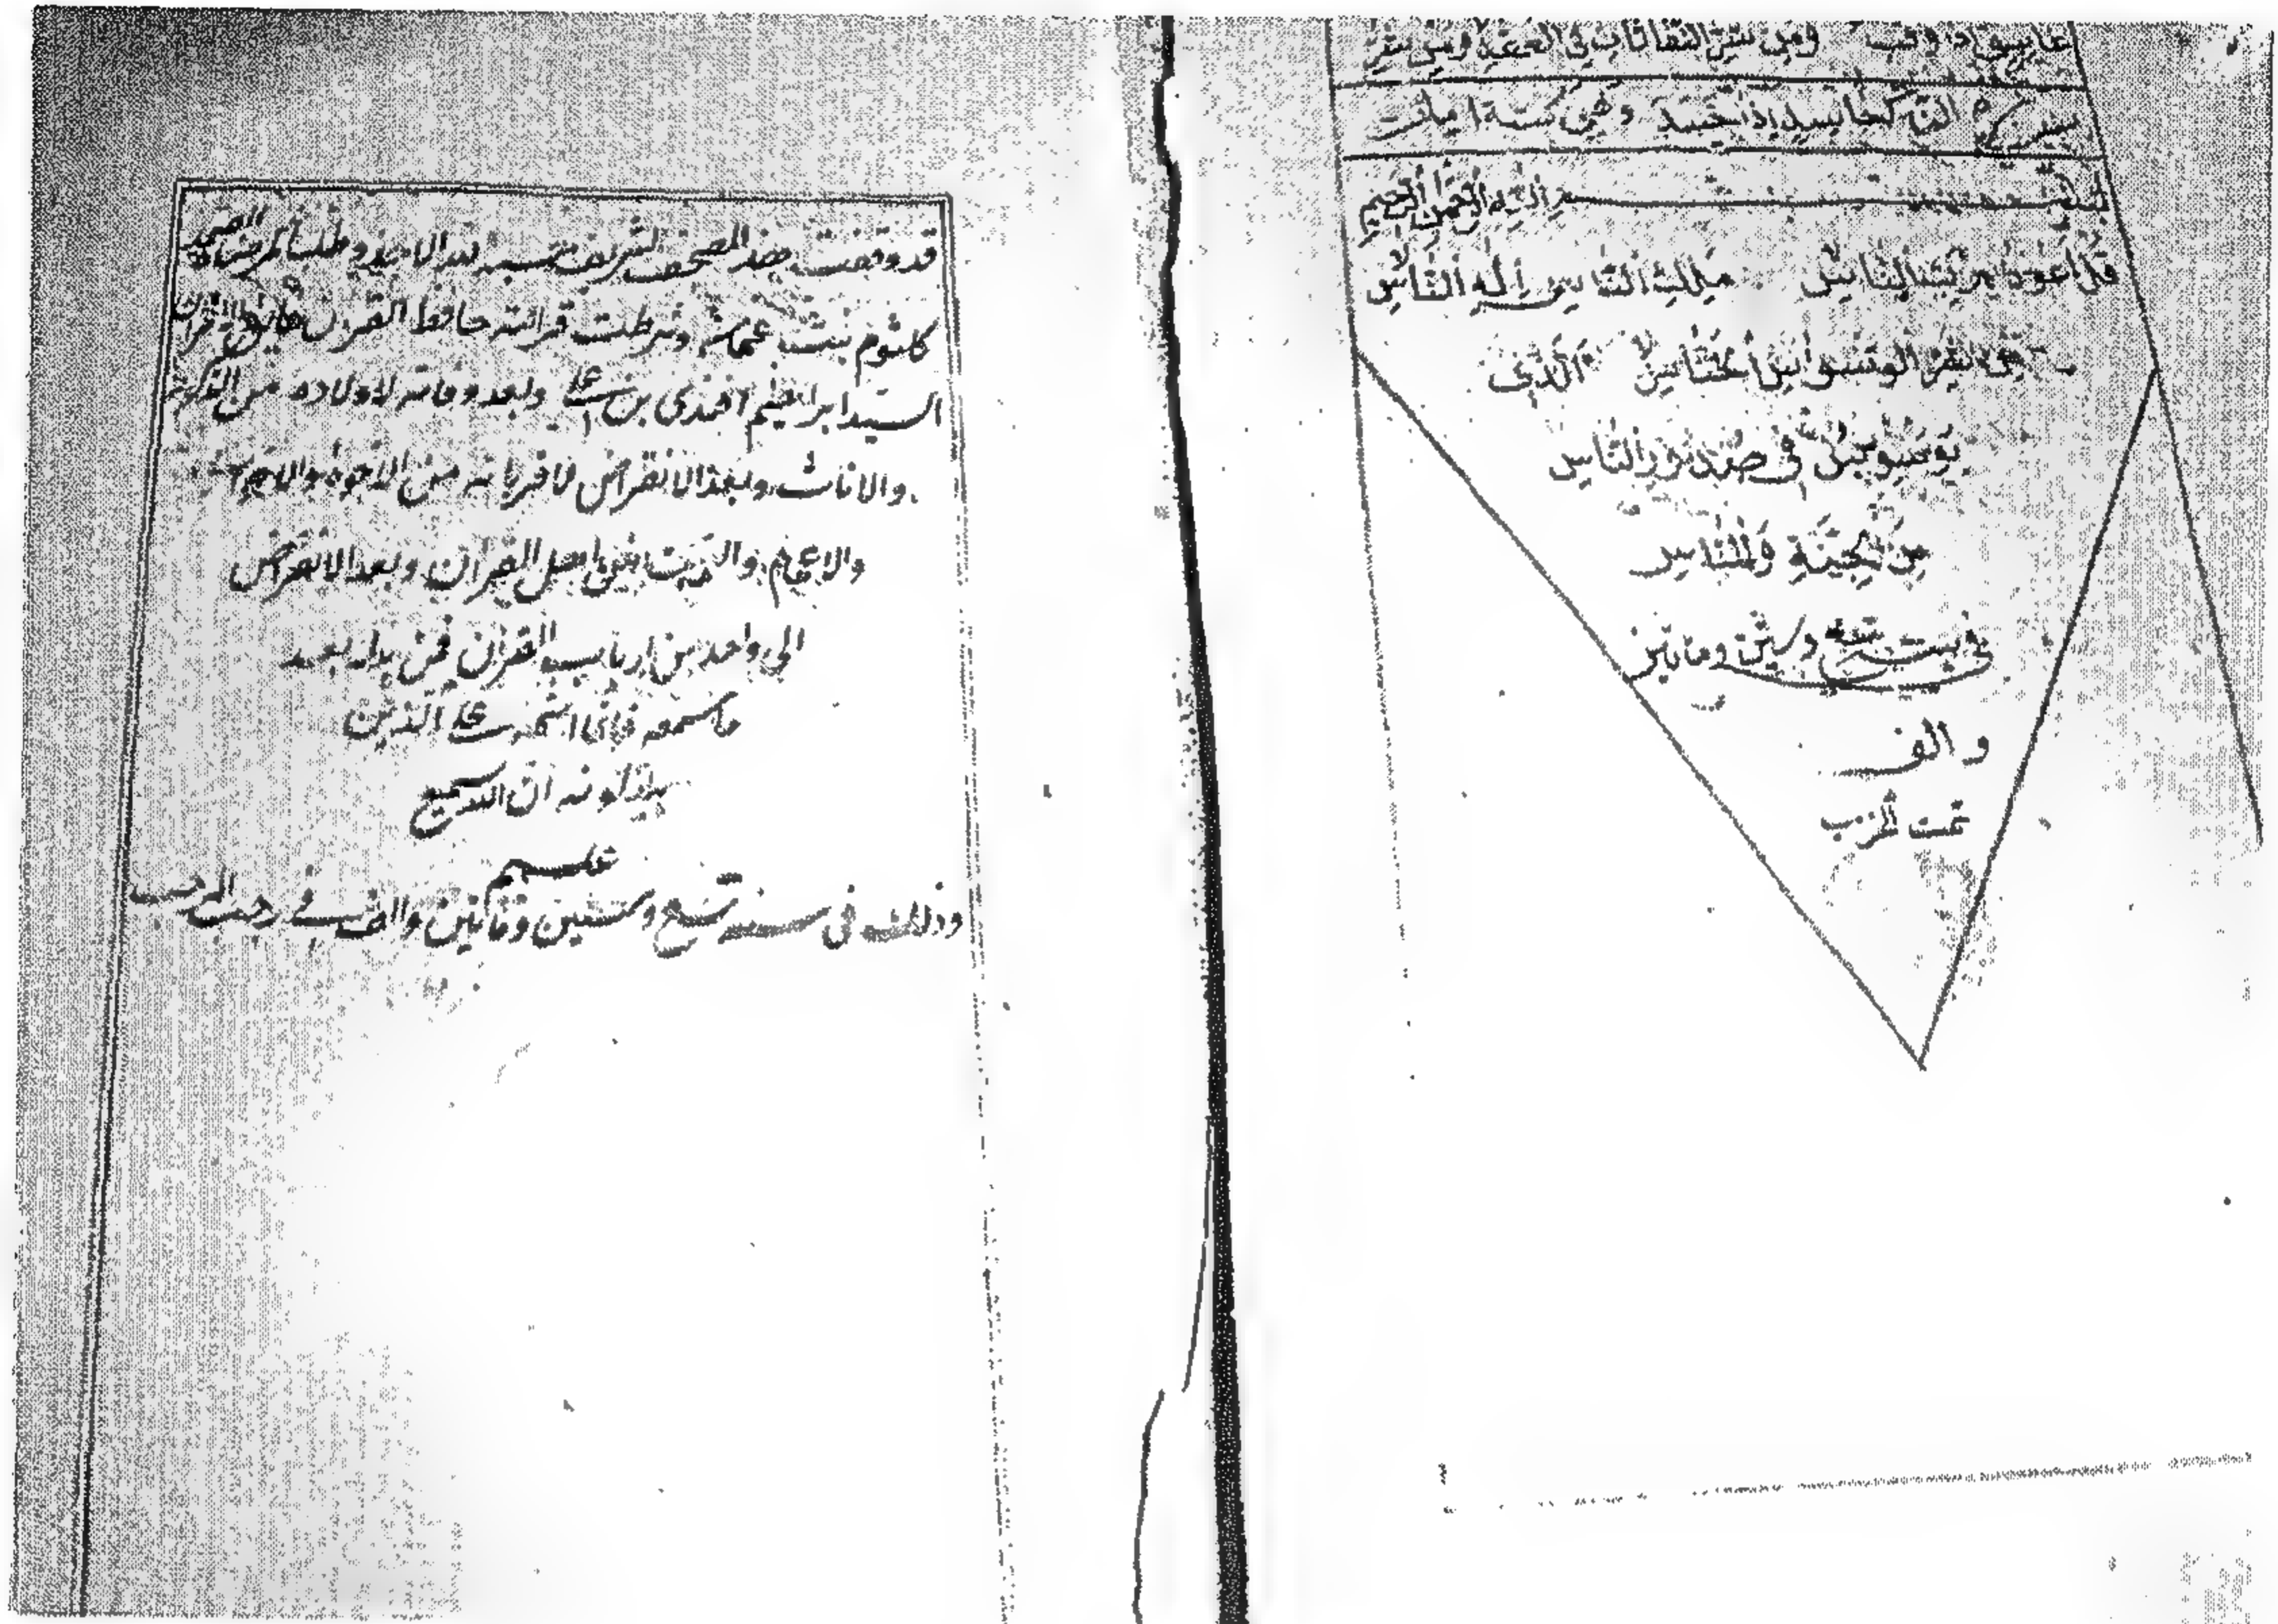 غاسق اذا وقب ومن شر النفاثات في العقد ومن شر
اذا حسد وهي ستة ايات
بسم الله الرحمن الرحيم
قل اعوذ برب الناس ملك الناس اله الناس
من شر الوسواس الخناس الذي
يوسوس في صدور الناس
من الجنة والناس
في سنة وستين ومأتين
و الف
تمت الحزب
قد وقفت هذا المصحف الشريف حسبة لله الاحد وطلبا لمرضات الصمد
كلثوم بنت عثمان وشرطت قرائته حافظ القرآن
السيد ابراهيم افندى بن على وبعد وفاته لاولاده من الذكور
والاناث وبعد الانقراض لاقربائه من الاخوة والاخوات
والاعمام بعض اهل القرآن وبعد الانقراض
الى واحد من ارباب القرآن فمن بدله بعد
ما سمعه فانما اثمه على الذين
يبدلونه ان الله سميع
عليم
وذلك في سنة تسع وستين ومأتين والف في رجب المرجب